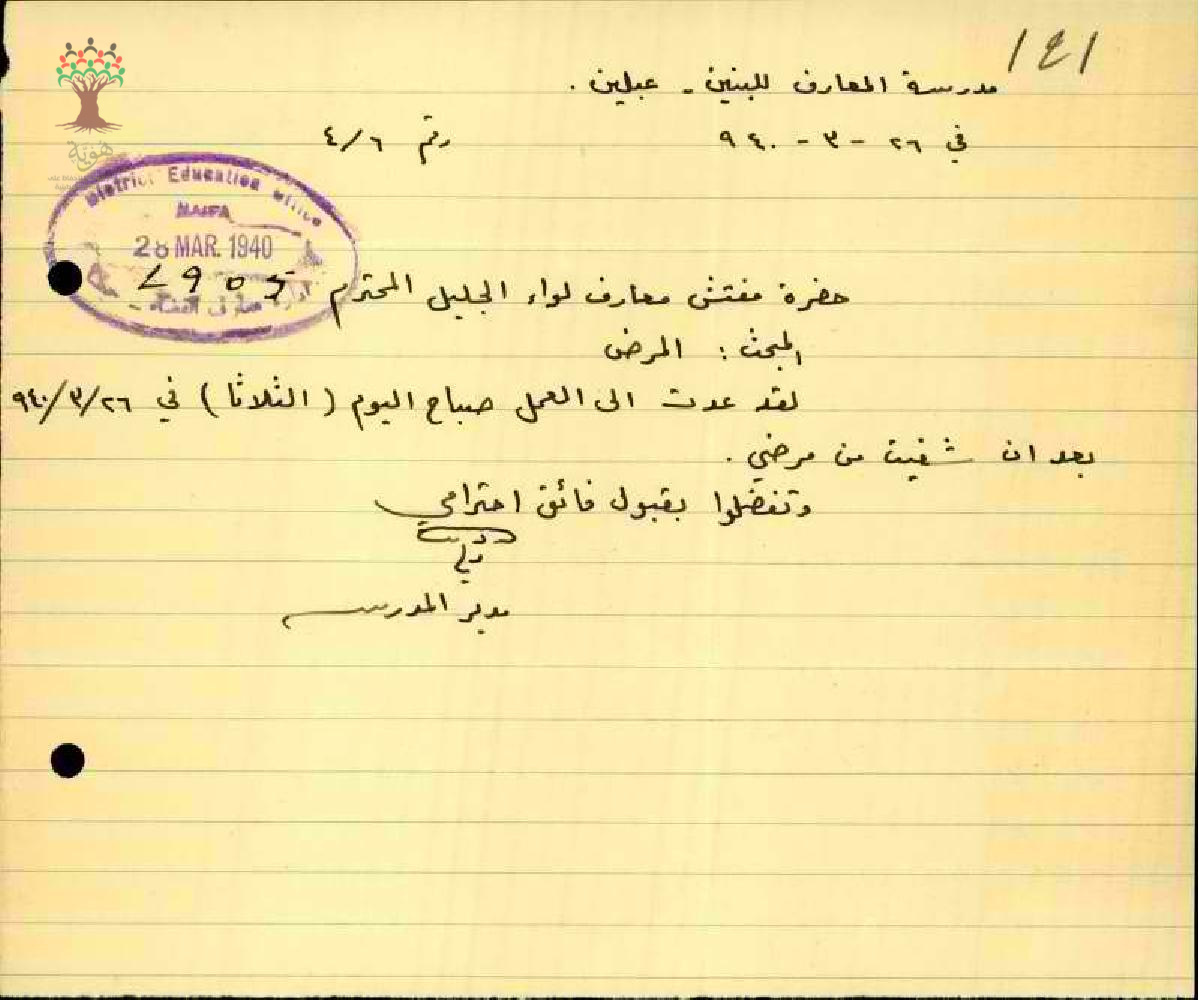 ١٤١
مدرسة المعارف للبنين - عبلين .
في ٢٦ - ٣ - ٩٤٠ رقم ٤/٦
هوية
District Education Office
HAIFA
28 MAR. 1940
حضرة مفتش معارف لواء الجليل المحترم
المبحث : المرض
لقد عدت الى العمل صباح اليوم ( الثلاثا ) في ٩٤٠/٣/٢٦
بعد ان شفيت من مرضي .
وتفضلوا بقبول فائق احترامي
مدير المدرسة